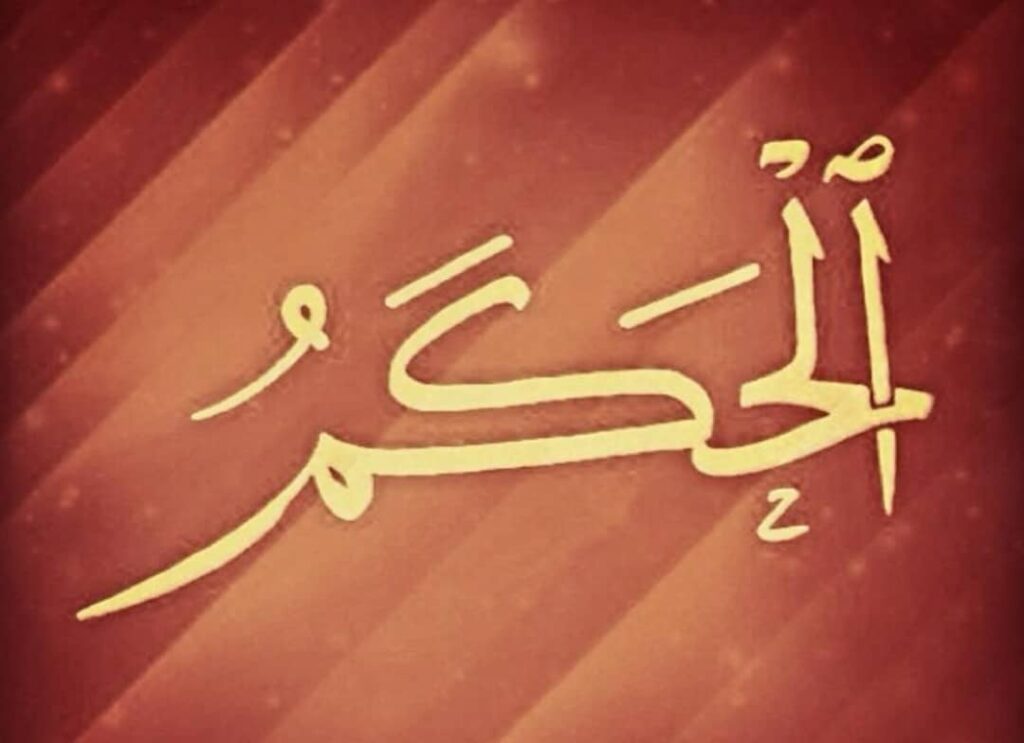 ٱلْحَكَمُ